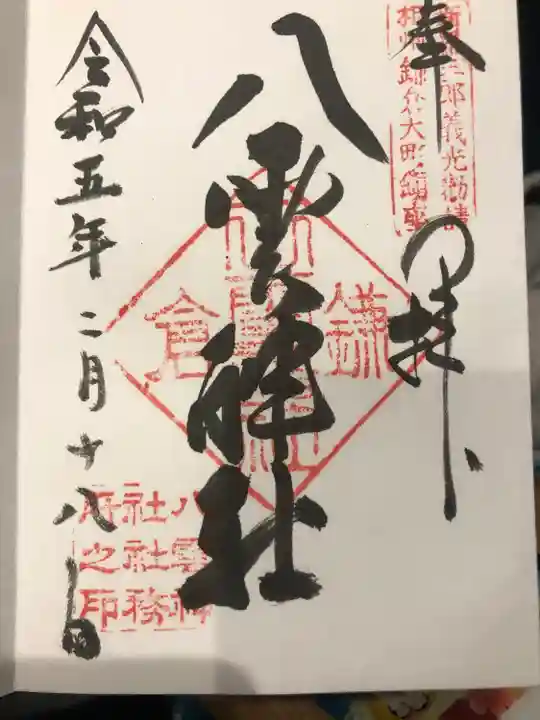 奉拝
新羅三郎義光勧請
相州鎌倉大町鎮座
八雲神社
鎌倉
八雲神
社社務
所之印
令和五年二月十八日